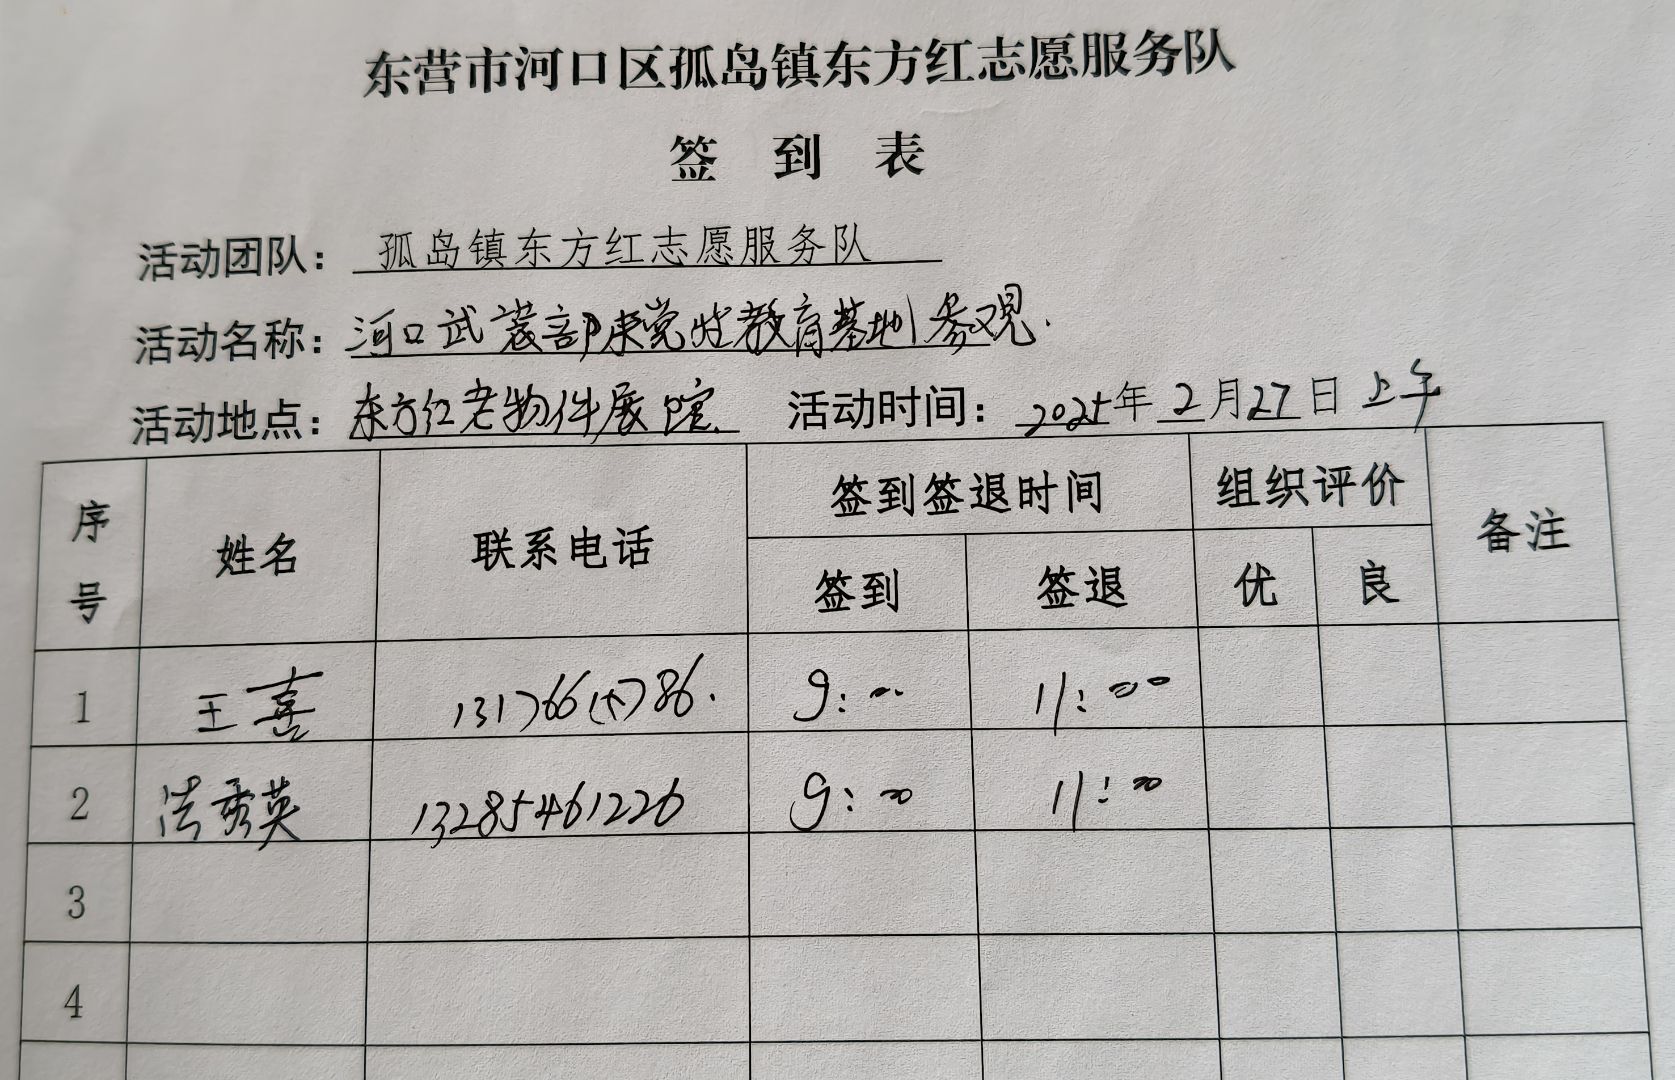 东营市河口区孤岛镇东方红志愿服务队
签到表
活动团队：孤岛镇东方红志愿服务队
活动名称：河口武装部来党性教育基地参观.
活动地点：东方红老物件展馆. 活动时间：2025年2月27日上午
序号 姓名 联系电话 签到签退时间 组织评价 备注
签到 签退 优 良
1 王喜 9:00 11:00
2 秀英 13285461226 9:00 11:00
3
4